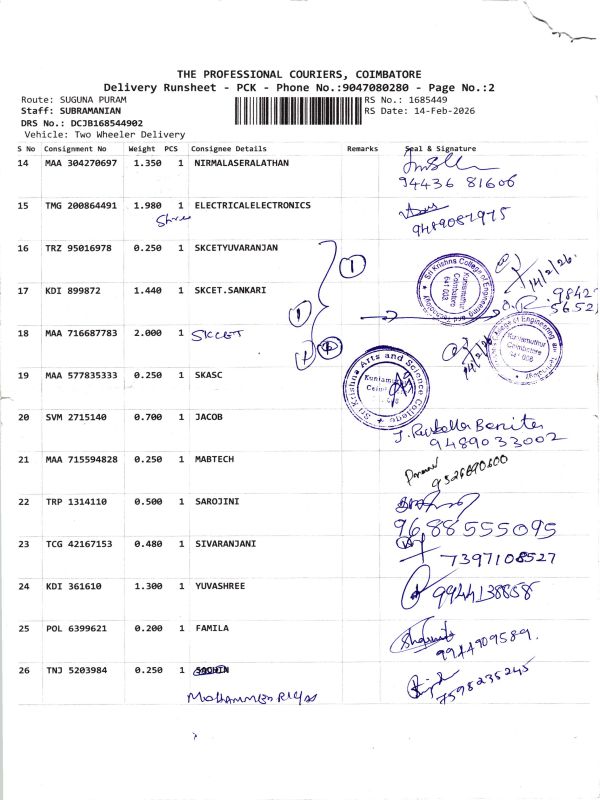 THE PROFESSIONAL COURIERS, COIMBATORE
Delivery Runsheet - PCK - Phone No.:9047080280 - Page No.:2
Route: SUGUNA PURAM
RS No.: 1685449
Staff: SUBRAMANIAN
RS Date: 14-Feb-2026
DRS No.: DCJB168544902
Vehicle: Two Wheeler Delivery
S No Consignment No Weight PCS Consignee Details Remarks Seal & Signature
14 MAA 304270697 1.350 1 NIRMALASERALATHAN
94436 81606
15 TMG 200864491 1.980 1 ELECTRICALELECTRONICS
Shree
9489087975
16 TRZ 95016978 0.250 1 SKCETYUVARANJAN
1
14/2/26.
17 KDI 899872 1.440 1 SKCET.SANKARI
1
Sri Krishna College of Engineering and Technology
Kuniamuthur
Coimbatore
641 008
18 MAA 716687783 2.000 1 SKCET
14/2/26
Kuniamuthur
Coimbatore
641 008
19 MAA 577835333 0.250 1 SKASC
Sri Krishna Arts and Science College
20 SVM 2715140 0.700 1 JACOB
9489033002
21 MAA 715594828 0.250 1 MABTECH
9526890600
22 TRP 1314110 0.500 1 SAROJINI
9688555095
23 TCG 42167153 0.480 1 SIVARANJANI
7397108527
24 KDI 361610 1.300 1 YUVASHREE
9944138858
25 POL 6399621 0.200 1 FAMILA
9944909589.
26 TNJ 5203984 0.250 1
7598235245